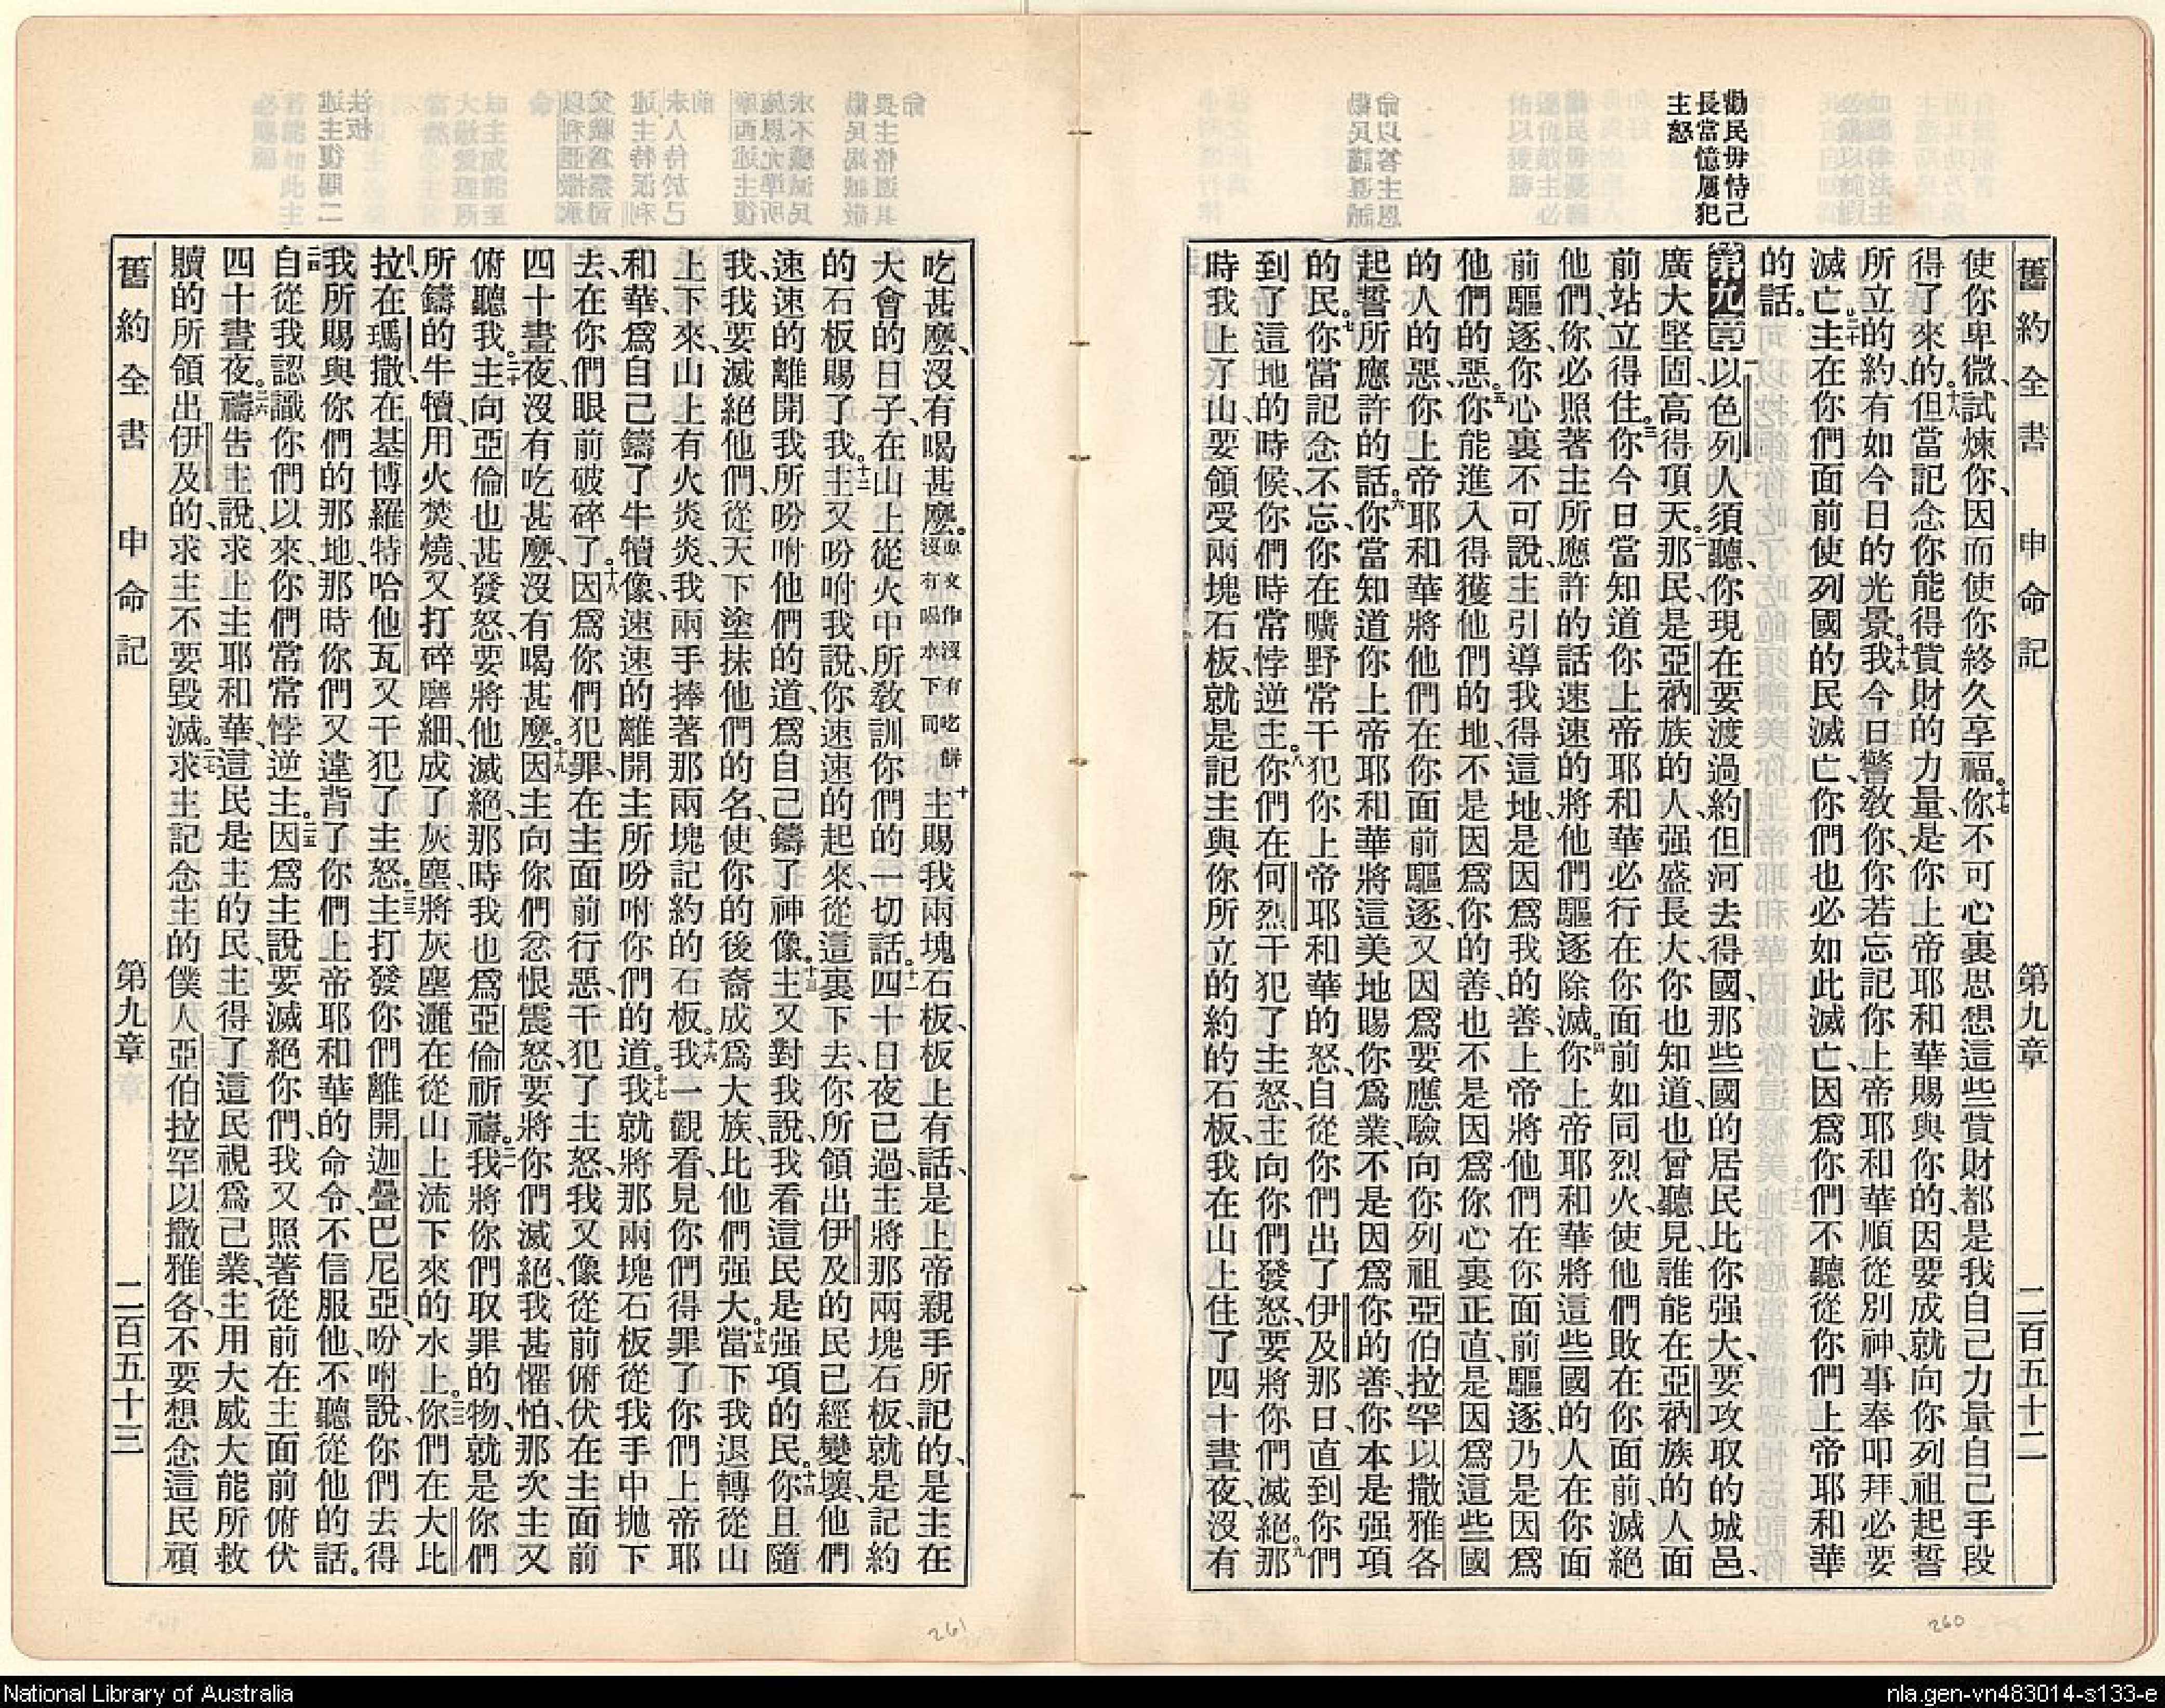 勸民毋恃己
長當憶屢犯
主怒
舊約全書 申命記 第九章 二百五十二
使你卑微、試煉你、因而使你終久享福。十七你不可心裏思想這些貲財都是我自己力量自己手段
得了來的。十八但當記念你能得貲財的力量、是你上帝耶和華賜與你的、因要成就向你列祖起誓
所立的約、有如今日的光景。十九我今日警敎你、你若忘記你上帝耶和華順從別神、事奉叩拜、必要
滅亡。二十主在你們面前使列國的民滅亡、你們也必如此滅亡、因爲你們不聽從你們上帝耶和華
的話。
第九章 一以色列人須聽、你現在要渡過約但河去得國、那些國的居民比你强大、要攻取的城邑、
廣大堅固、高得項天。二那民是亞衲族的人、强盛長大、你也知道、也曾聽見、誰能在亞衲族的人面
前站立得住。三你今日當知道你上帝耶和華必行在你面前如同烈火、使他們敗在你面前、滅絕
他們、你必照著主所應許的話速速的將他們驅逐除滅。四你上帝耶和華將這些國的人在你面
前驅逐、你心裏不可說、主引導我得這地、是因爲我的善、上帝將他們在你面前驅逐、乃是因爲
他們的惡。五你能進入得獲他們的地、不是因爲你的善、也不是因爲你心裏正直、是因爲這些國
的人的惡、你上帝耶和華將他們在你面前驅逐、又因爲要應驗向你列祖亞伯拉罕以撒雅各
起誓所應許的話。六你當知道你上帝耶和華將這美地賜你爲業、不是因爲你的善、你本是强項
的民。七你當記念不忘、你在曠野常干犯你上帝耶和華的怒、自從你們出了伊及那日、直到你們
到了這地的時候、你們時常悖逆主。八你們在何烈干犯了主怒、主向你們發怒、要將你們滅絕。九那
時我上了山、要領受兩塊石板、就是記主與你所立的約的石板、我在山上住了四十晝夜、沒有
吃甚麼、沒有喝甚麼。原文作沒有吃餅沒有喝水下同十主賜我兩塊石板、板上有話、是上帝親手所記的、是主在
大會的日子、在山上從火中所敎訓你們的一切話。十一四十日夜已過、主將那兩塊石板、就是記約
的石板賜了我。十二主又吩咐我說、你速速的起來、從這裏下去、你所領出伊及的民已經變壞、他們
速速的離開我所吩咐他們的道、爲自己鑄了神像。十三主又對我說、我看這民是强項的民。十四你且隨
我、我要滅絕他們、從天下塗抹他們的名、使你的後裔成爲大族、比他們强大。十五當下我退轉從山
上下來、山上有火炎炎、我兩手捧著那兩塊記約的石板。十六我一觀看、見你們得罪了你們上帝耶
和華、爲自己鑄了牛犢像、速速的離開主所吩咐你們的道。十七我就將那兩塊石板從我手中抛下
去、在你們眼前破碎了。十八因爲你們犯罪、在主面前行惡、干犯了主怒、我又像從前俯伏在主面前
四十晝夜、沒有吃甚麼、沒有喝甚麼。十九因主向你們忿恨震怒、要將你們滅絕、我甚懼怕、那次主又
俯聽我。二十主向亞倫也甚發怒、要將他滅絕、那時我也爲亞倫祈禱。二一我將你們取罪的物、就是你們
所鑄的牛犢、用火焚燒、又打碎磨細、成了灰塵、將灰塵灑在從山上流下來的水上。二二你們在大比
拉、在瑪撒、在基博羅特哈他瓦、又干犯了主怒。二三主打發你們離開迦疊巴尼亞、吩咐說、你們去得
我所賜與你們的那地、那時你們又違背了你們上帝耶和華的命令、不信服他、不聽從他的話。
二四自從我認識你們以來、你們常常悖逆主。二五因爲主說、要滅絕你們、我又照著從前在主面前俯伏
四十晝夜。二六禱告主說、求上主耶和華、這民是主的民、主得了這民視爲己業、主用大威大能所救
贖的所領出伊及的、求主不要毀滅。二七求主記念主的僕人亞伯拉罕以撒雅各、不要想念這民頑
舊約全書 申命記 第九章 二百五十三
260
261
National Library of Australia
nla.gen-vn483014-s133-e